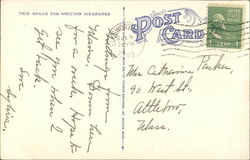 THIS SPACE FOR WRITING MESSAGES
Greetings from
Maine. Am here
for a week. Hope to
see you when I
get back.
Love
POST
CARD
Mrs Catherine Parker,
90 West St.,
Attleboro,
Mass.